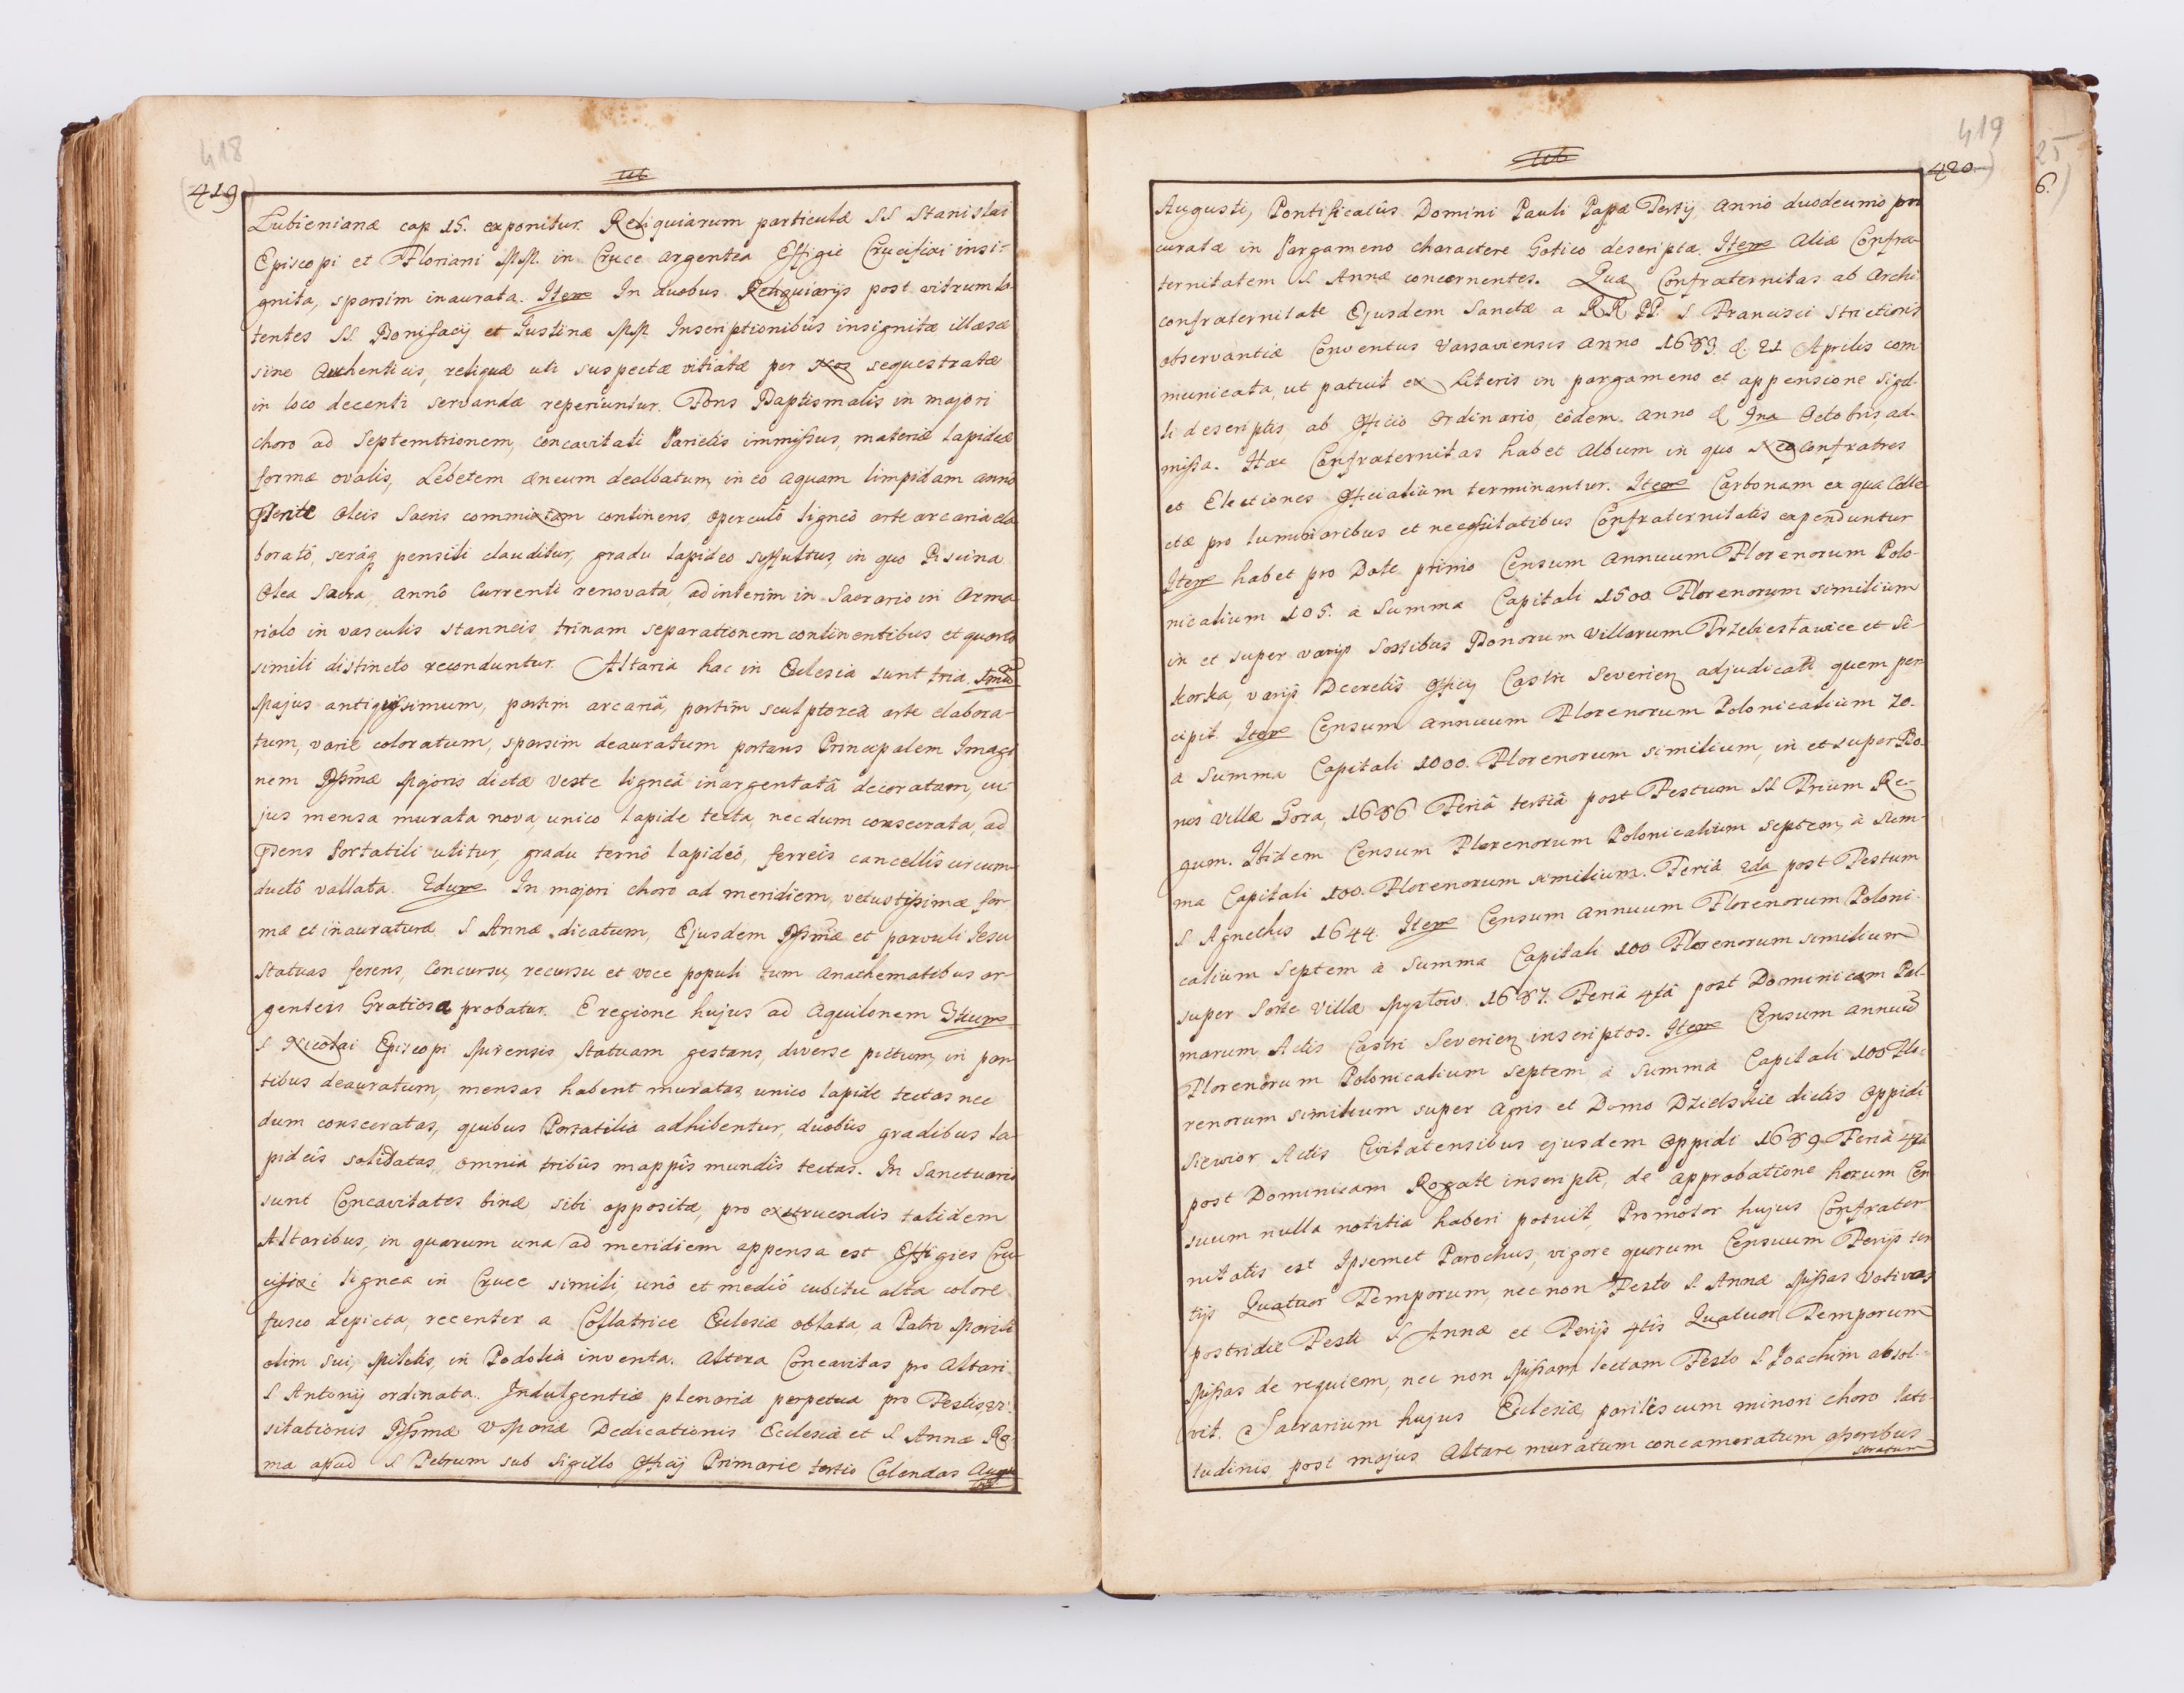 418
419
ut
Lubienianæ cap 15. exponitur. Reliquiarum particulæ SS Stanislai
Episcopi et Floriani MM. in Cruce argentea Effigie Crucifixi insi-
gnita, sparsim inaurata. Item In duobus Reliquiarijs post vitrum la-
tentes SS. Bonifacij et Justinæ MM. Inscriptionibûs insignitæ illæsæ
sine Authenticis, reliquæ uti suspectæ vitiatæ per Nos sequestratæ
in loco decenti servandæ reperiuntur. Fons Baptismalis in majori
choro ad Septemtrionem, concavitati Parietis immissus, materiæ lapideæ
formæ ovalis, Lebetem æneum dealbatum, in eo aquam limpidam annô
Pñte Oleis Sacris commixtam continens, operculô ligneô arte arcaria ela
boratô, serâq pensili clauditur, gradu lapideo suffultus, in quo Piscina
Olea Sacra, annô Currenti renovata, ad interim in Sacrario in Arma
riolo in vasculis stanneis, trinam separationem continentibus, et quarto
simili distincto reconduntur. Altaria hac in Ecclesia sunt tria. 1mũ
Majus antiquissimum, partim arcariâ, partim sculptoreâ arte elabora-
tum, varie coloratum, sparsim deauratum portans Principalem Imagi
nem Bssmæ Majoris dictæ veste ligneâ inargentatâ decoratam, cu-
jus mensa murata nova, unico lapide tecta, necdum consecrata, ad
Pñens Portatili utitur, gradu ternô lapideô, ferreis cancellis circum-
ductô vallata. 2dum In majori choro ad meridiem, vetustissimæ for-
mæ et inauraturæ S Annæ dicatum, Ejusdem Bssmæ et parvuli Jesu
Statuas ferens, Concursu, recursu et voce populi tum anathematibus ar-
genteis Gratiosa probatur. E regione hujus ad Aquilonem 3tium
S Nicolai Episcopi Mirensis Statuam gestans, diverse pictum, in par
tibus deauratum, mensas habent muratas unico lapide tectas nec
dum consecratas, quibus Portatilia adhibentur, duobûs gradibus la-
pideis solidatas, omnia tribûs mappis mundis tectas. In Sanctuario
sunt Concavitates binæ sibi oppositæ, pro exstruendis totidem
Altaribus, in quarum una ad meridiem appensa est Effigies Cru-
cifixi lignea in Cruce simili, unô et mediô cubitu alta colore
fusco depicta, recenter a Collatrice Ecclesiæ oblata, a Patre Mariti
olim sui, Militis, in Podolia inventa. Altera Concavitas pro Altari
S Antonij ordinata. Indulgentiæ plenaria perpetua pro Festis Vi-
sitationis Bssmæ V Mariæ Dedicationis Ecclesiæ et S Annæ Ro-
ma apud S Petrum sub Sigillo Officij Primarie tertio Calendas Augu
sti
419
420
ut
Augusti, Pontificatûs Domini Pauli Papæ Tertij, annô duodecimo pro
curatæ in Pargameno charactere Gotico descriptæ. Item Aliæ Confra-
ternitatem S Annæ concernentes. Quæ Confraternitas ab Archi
confraternitate Ejusdem Sanctæ a RR PP. S Francisci Strictioris
observantiæ Conventus Varsaviensis anno 1683. d. 21 Aprilis com
municata, ut patuit ex Literis in pargameno et appensione Sigil-
li descriptis, ab Officio Ordinario, eôdem anno d 9na Octobris, ad-
missa. Hæc Confraternitas habet Album in quo Neoconfratres
et Electiones Officialium terminantur. Item Carbonam ex qua Colle-
ctæ pro luminaribus et necessitatibus Confraternitatis expenduntur
Item habet pro Dote primo Censum annuum Florenorum Polo-
nicalium 105. a Summa Capitali 1500 Florenorum similium
in et super varijs Sortibus Bonorum Villarum Przeliesławice et Si-
korka, varijs Decretis Officij Castri Severien adjudicatæ quem per
cipit. Item Censum annuum Florenorum Polonicalium 70.
a Summa Capitali 1000. Florenorum similium, in et super Bo-
nis Villæ Gora, 1686 Feriâ tertiâ post Festum SS Trium Re-
gum. Itidem Censum Florenorum Polonicalium septem, à Sum-
ma Capitali 100. Florenorum similium. Feriâ 2da post Festum
S Agnethis 1644. Item Censum annuum Florenorum Poloni-
calium Septem à Summa Capitali 100 Florenorum similium
super Sorte Villæ Mysłow. 1687. Feriâ 4tâ post Dominicam Pal-
marum Actis Castri Severien inscriptos. Item Censum annuũ
Florenorum Polonicalium Septem à Summa Capitali 100 Flo-
renorum similium super Agris et Domo Dzielskie dictis Oppidi
Siewior Actis Civitatensibus ejusdem Oppidi 1689. Feriâ 4ta
post Dominicam Rogate inscripti, de approbatione horum Cen
suum nulla notitia haberi potuit, Promotor hujus Confrater
nitatis est Ipsemet Parochus, vigore quorum Censuum Ferijs ter
tijs Quatuor Temporum, nec non Festo S Annæ Missas Votivas
postridie Festi S Annæ et Ferijs 4tis Quatuor Temporum
Missas de requiem, nec non Missam lectam Festo S Joachim absol-
vit. Sacrarium hujus Ecclesiæ parilis cum minori choro lati-
tudinis post majus Altare muratum concameratum asseribus
stratum
25
6.